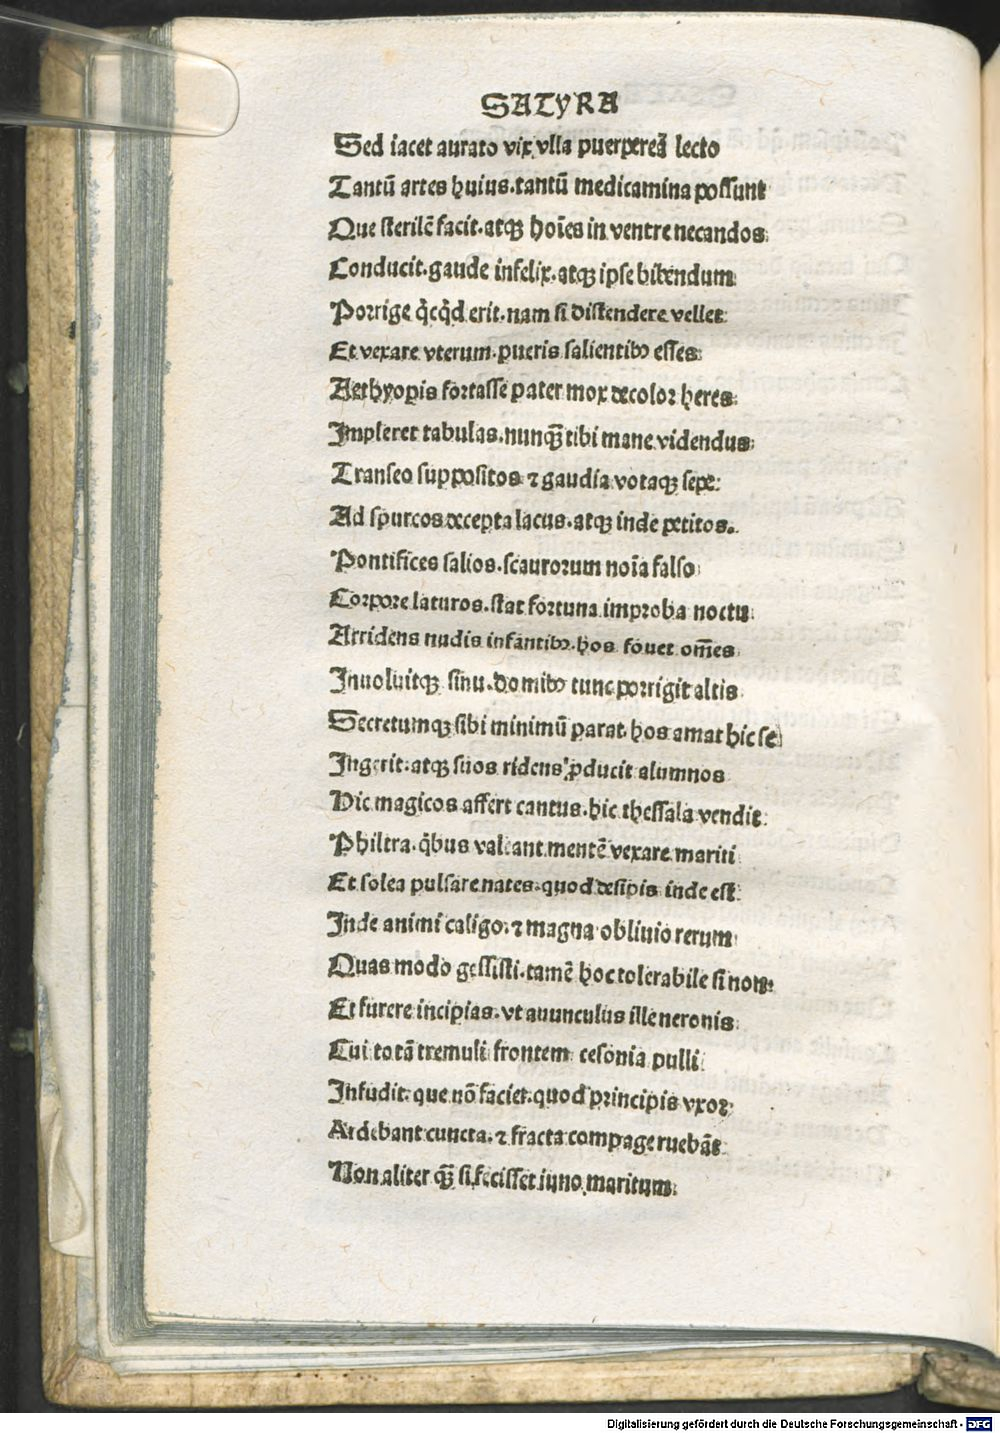 SATYRA
Sed iacet aurato vix vlla puerpereã lecto
Tantũ artes huius.tantũ medicamina possunt
Que sterilẽ facit.atqꝫ hoĩes in ventre necandos:
Conducit.gaude infelix.atqꝫ ipse bibendum:
Porrige q̃cq̃d erit.nam si distendere vellet:
Et vexare vterum.pueris salientibꝰ esses:
Aethyopis fortasse pater mox decolor heres:
Impleret tabulas.nunqꝫ̃ tibi mane videndus:
Transeo suppositos ⁊ gaudia votaqꝫ sepe:
Ad spurcos decepta lacus.atqꝫ inde petitos..
Pontifices salios.scaurorum noĩa falso:
Corpore laturos.stat fortuna improba noctu:
Arridens nudis infantibꝰ.hos fouet om̃es:
Inuoluitqꝫ sinu.domibꝰ tunc porrigit altis
Secretumqꝫ sibi minimũ parat.hos amat hic se:
Ingerit:atqꝫ suos ridens ꝓducit alumnos
Hic magicos affert cantus.hic thessala vendit:
Philtra.q̃bus valeant mentẽ vexare mariti:
Et solea pulsare nates.quod desipis inde est:
Inde animi caligo.⁊ magna obliuio rerum:
Quas modo gessisti.tamẽ hoc tolerabile si non:
Et furere incipias.vt auunculus ille neronis:
Cui totã tremuli frontem cesonia pulli:
Infudit.que nõ faciet.quod principis vxor:
Ardebant cuncta.⁊ fracta compage ruebãt:
Non aliter qꝫ̃ si fecisset iuno maritum:
Digitalisierung gefördert durch die Deutsche Forschungsgemeinschaft - DFG